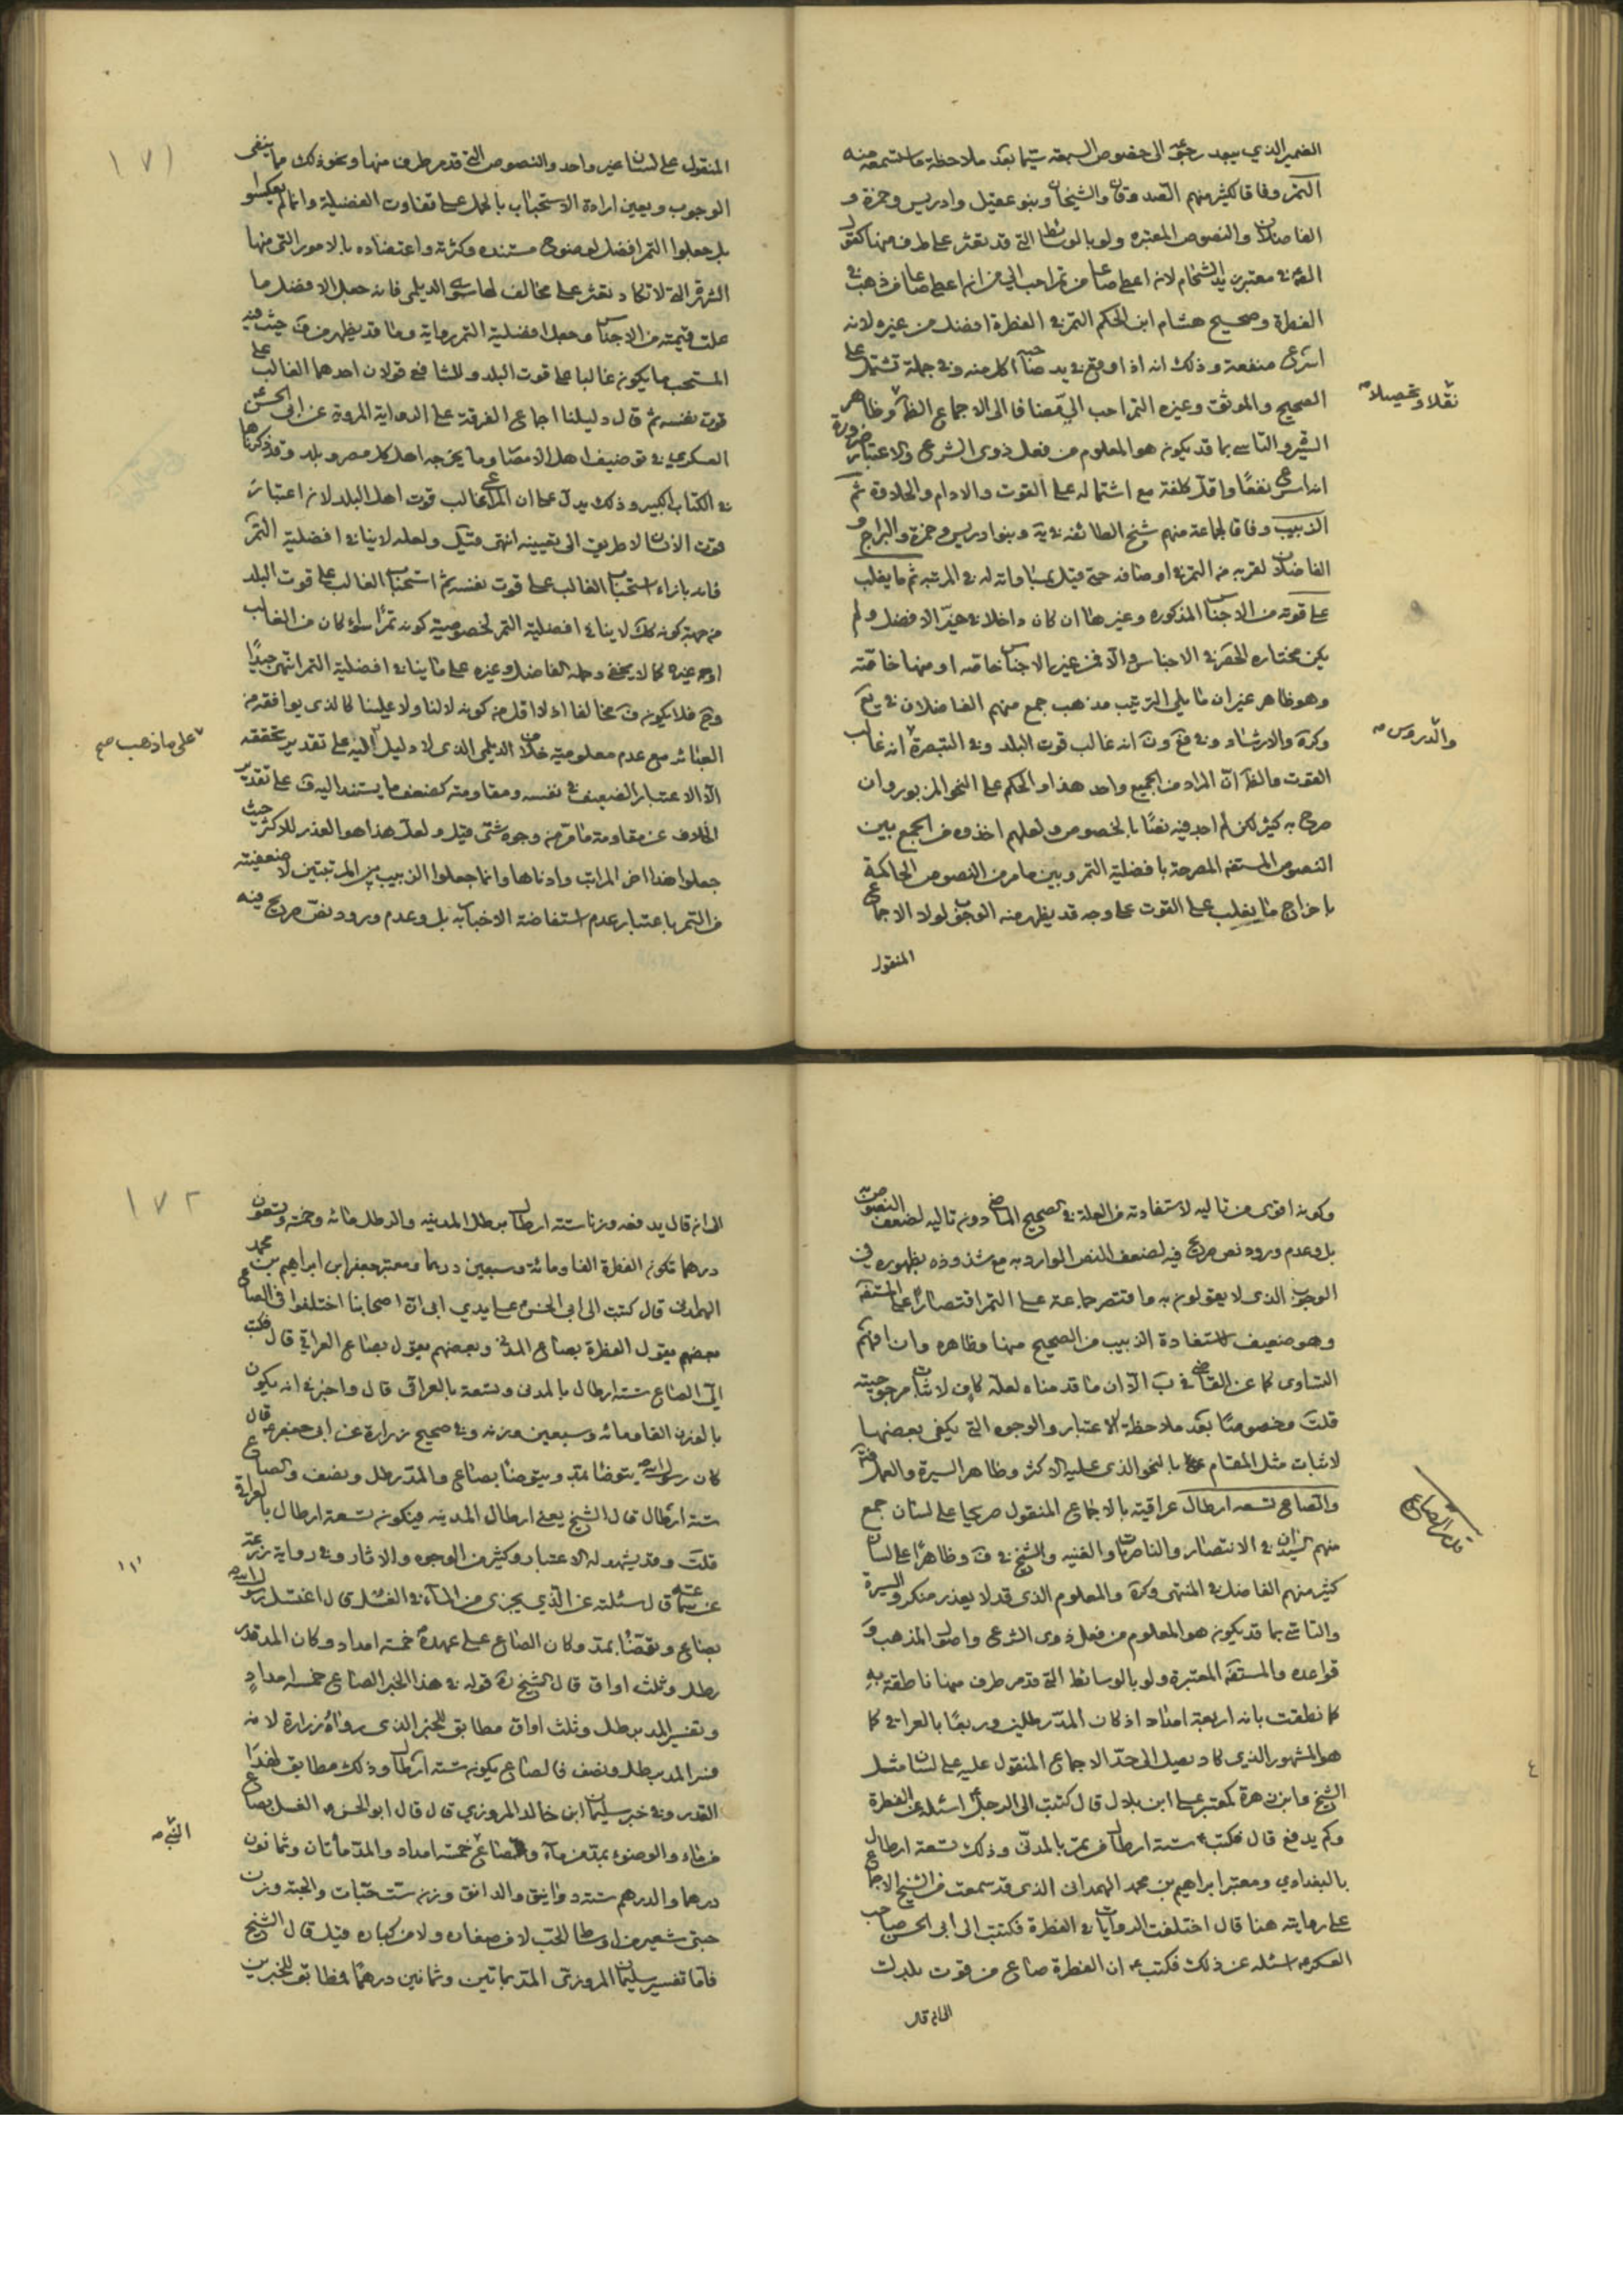 الضمير الذي يبعد رجوعه الى خصوص السبعة سيما بعد ملاحظة ما استسمعه منه
التمر وفاقا لكثير منهم الصدوقان والشيخان وبنو عقيل وادريس وحمزة و
الفاضلان والنصوص المعتبره ولو بالوسائط التي قد تعثر على طرف منها كقول
الصّم في معتبر زيد الشحام لان اعطي صاعا من تمر احب الي من ان اعطي صاعا من ذهب في
الفطرة وصحيح هشام ابن الحكم التمر في الفطرة افضل من غيره لانه
اسرع منفعة وذلك انه اذا وقع في يد صاحبه اكل منه وفي جملة تشتمل على
الصحيح والموثق وغيره التمر احب الي مضافا الى الاجماع الظاهر وظاهر
نقلا وتحصيلا
السيرة والتاسي بما قد يكون هو المعلوم من فعل ذوي الشرع والاعتبار ضرورة
انه اسرع نفعًا واقل كلفة مع اشتماله على القوت والادام والحلاوة ثم
الزبيب وفاقا لجماعة منهم شيخ الطائفه في ية وبنو ادريس وحمزة والبراج و
الفاضلان لقربه من التمر في اوصافه حتى قيل بمساواته له في المرتبه ثم ما يغلب
على قوته من الاجناس المذكوره وغيرها ان كان داخلا في حيّز الافضل ولم
يكن مختاره الحصر في الاجناس والا فمن غير الاجناس خاصه او منها خاصّه
وهو ظاهر غير ان ما يلي الترتيب مذهب جمع منهم الفاضلان في يع
وكرة والارشاد وفي فع ون انه غالب قوت البلد وفي التبصرة انه غالب
والدروس
القوت والظ انّ المراد من الجميع واحد هذا والحكم على النحو المزبور وان
صرح به كثير لكن لم اجد فيه نصًا بالخصوص ولعلهم اخذوه من الجمع بين
النصوص المستفه المصرحة بافضلية التمر وبين ما مر من النصوص الحاكمة
باخراج ما يغلب على القوت على وجه قد يظهر منه الوجوب لولا الاجماع
المنقول
١٧١
المنقول على لسان غير واحد والنصوص التي قد مر طرف منها ونحو ذلك مما ينفى
الوجوب ويعين ارادة الاستحباب بالحمل على تفاوت الفضيلة وانما لم يعكسوا
بل جعلوا التمر افضل لوضوح مستنده وكثرته واعتضاده بالامور التي منها
الشهرة التي لا تكاد تعثر على مخالف لها سوى الديلمي فانه جعل الافضل ما
علت قيمته من الاجناس وجعل افضلية التمر رواية وما قد يظهر من ف حيث فيه
المستحب ما يكون غالبا على قوت البلد وللشافعي قولان احدهما الغالب على
قوت نفسه ثم قال دليلنا اجماع الفرقة على الرواية المروية عن ابى الحسن
العسكري في توضيف اهل الامصار وما يخرجه اهل كل مصر وبلد وقد ذكرناها
في الكتاب الكبير وذلك يدل على ان المراعى غالب قوت اهل البلد لان اعتبار
قوت الانسان لا طريق الى تعيينه انتهى قيل ولعله لا ينافي افضلية التمر
فانه بازاء استحباب الغالب على قوت نفسه ثم استحباب الغالب على قوت البلد
من جهة كونه كك لا ينافي افضلية التمر لخصوصية كونه تمرًا سواء كان من الغالب
او من غيره كما لا يخفى وحمله الفاضل وغيره على ما ينافي افضلية التمر انتهى جيدًا
وح فلا يكون ف مخالفا اذ لا اقل من كونه لا لنا ولا علينا كالذي يوافقه من
العبائر مع عدم معلومية خلاف الديلمي الذي لا دليل اليه على تقدير تحققه
على ما ذهب صح
الا الاعتبار الضعيف في نفسه ومقاومته كضعف ما يستند اليه ف على تقدير
الخلاف عن مقاومة ما مر من وجوه شتى قيل ولعل هذا هو العذر للاكثر حيث
جعلوا هذا اخر المراتب وادناها وانما جعلوا الزبيب بين المرتبتين لاضعفيته
من التمر باعتبار عدم استفاضة الاخبار به بل وعدم ورود نص صريح فيه
وكونه اقوى من تاليه لاستفادته من العلة في الصحيح الماضي دون تاليه لضعف النصوص به
بل وعدم ورود نص صريح فيه لضعف النص الوارد به مع شذوذه بظهوره في
الوجوب الذي لا يقولون به واقتصر جماعة على التمر اقتصارًا على المستفه
وهو ضعيف لاستفادة الزبيب من الصحيح منها وظاهره وان افهم
التساوى كما عن القاضي في ب الا ان ما قدمناه لعله كاف لاثبات مرجوحيته
قلت وخصوصًا بعد ملاحظة الاعتبار والوجوه التي يكفي بعضها
لاثبات مثل المقام على النحو الذي عليه الاكثر وظاهر السيرة والعمل
والصاع تسعه ارطال عراقية بالاجماع المنقول صريحا على لسان جمع
قدر الصاع
منهم السيدان في الانتصار والناصريات والغنيه والشيخ في ف وظاهرًا على لسان
كثير منهم الفاضل في المنتهى وكرة والمعلوم الذي قد لا يعذر منكره والسيرة
والتاسي بما قد يكون هو المعلوم من فعل ذوى الشرع واصول المذهب و
قواعده والمستفه المعتبرة ولو بالوسائط التي قد مر طرف منها ناطقة به
كما نطقت بانه اربعة امداد اذ كان المد رطلين وربعًا بالعراقي كما
هو المشهور الذي كاد يصل الى حدّ الاجماع المنقول عليه على لسان مثل
الشيخ وابن زهرة كمعتبر علي ابن بلال قال كتبت الى الرجل اسئله عن الفطرة
وكم يدفع قال فكتب ستة ارطال من تمر بالمدنّي وذلك تسعة ارطال
بالبغدادي ومعتبر ابراهيم بن محمد الهمداني الذي قد سمعت من الشيخ الاجماع
على روايته هنا قال اختلفت الروايات في الفطرة فكتبت الى ابي الحسن صاحب
العسكر اسئله عن ذلك فكتب ان الفطرة صاع من قوت بلدك
الى ان قال
١٧٢
الى ان قال يدفعه وزنا ستة ارطال برطل المدينه والرطل مائه وخمسة وتسعون
درهما تكون الفطرة الفا ومائة وسبعين درهما ومعتبر جعفر ابن ابراهيم بن محمد
الهمداني قال كتبت الى ابي الحسن على يدي ابى ان اصحابنا اختلفوا في الصاع
بعضهم يقول الفطرة بصاع المدني وبعضهم يقول بصاع العراقي قال فكتب
اليّ الصاع ستة ارطال بالمدنى وتسعة بالعراقى قال واخبرني انه يكون
بالوزن الفا ومائه وسبعين وزنه وفي صحيح زرارة عن ابى جعفر قال
كان رسول الله يتوضا بمدّ ويتوضا بصاع والمدّ رطل ونصف والصاع
ستة ارطال قال الشيخ يعنى ارطال المدينه فيكون تسعة ارطال بالعراقي
قلت وقد يشهد له الاعتبار وكثير من الوجوه والاثار وفي رواية زرعة
عن سماعة قال سئلته عن الذي يجزى من الماء في الغسل قال اغتسل رسول الله
بصاع وتوضّا بمدّ وكان الصاع على عهده خمسة امداد وكان المد قدر
رطل وثلث اواق قال الشيخ ره قوله في هذا الخبر الصاع خمسة امدادٍ
وتفسير المد برطل وثلث اواق مطابق للخبر الذي رواه زرارة لانه
فسر المد برطل ونصف فالصاع يكون ستة ارطال وذلك مطابق لهذا
القدر وفي خبر سليمان ابن خالد المروزي قال قال ابو الحسن الغسل بصاع
من ماء والوضوء بمدّ من ماء وصاع خمسة امداد والمدّ مأتان وثمانون
النبي
درهما والدرهم ستة دوانيق والدانق وزن ستّ حبّات والحبّة وزن
حبتي شعير من اوسط الحبّ لا من صغاره ولا من كباره قيل قال الشيخ
فاما تفسير سليمان المروزي المدّ بماتين وثمانين درهمًا فمطابق للخبرين